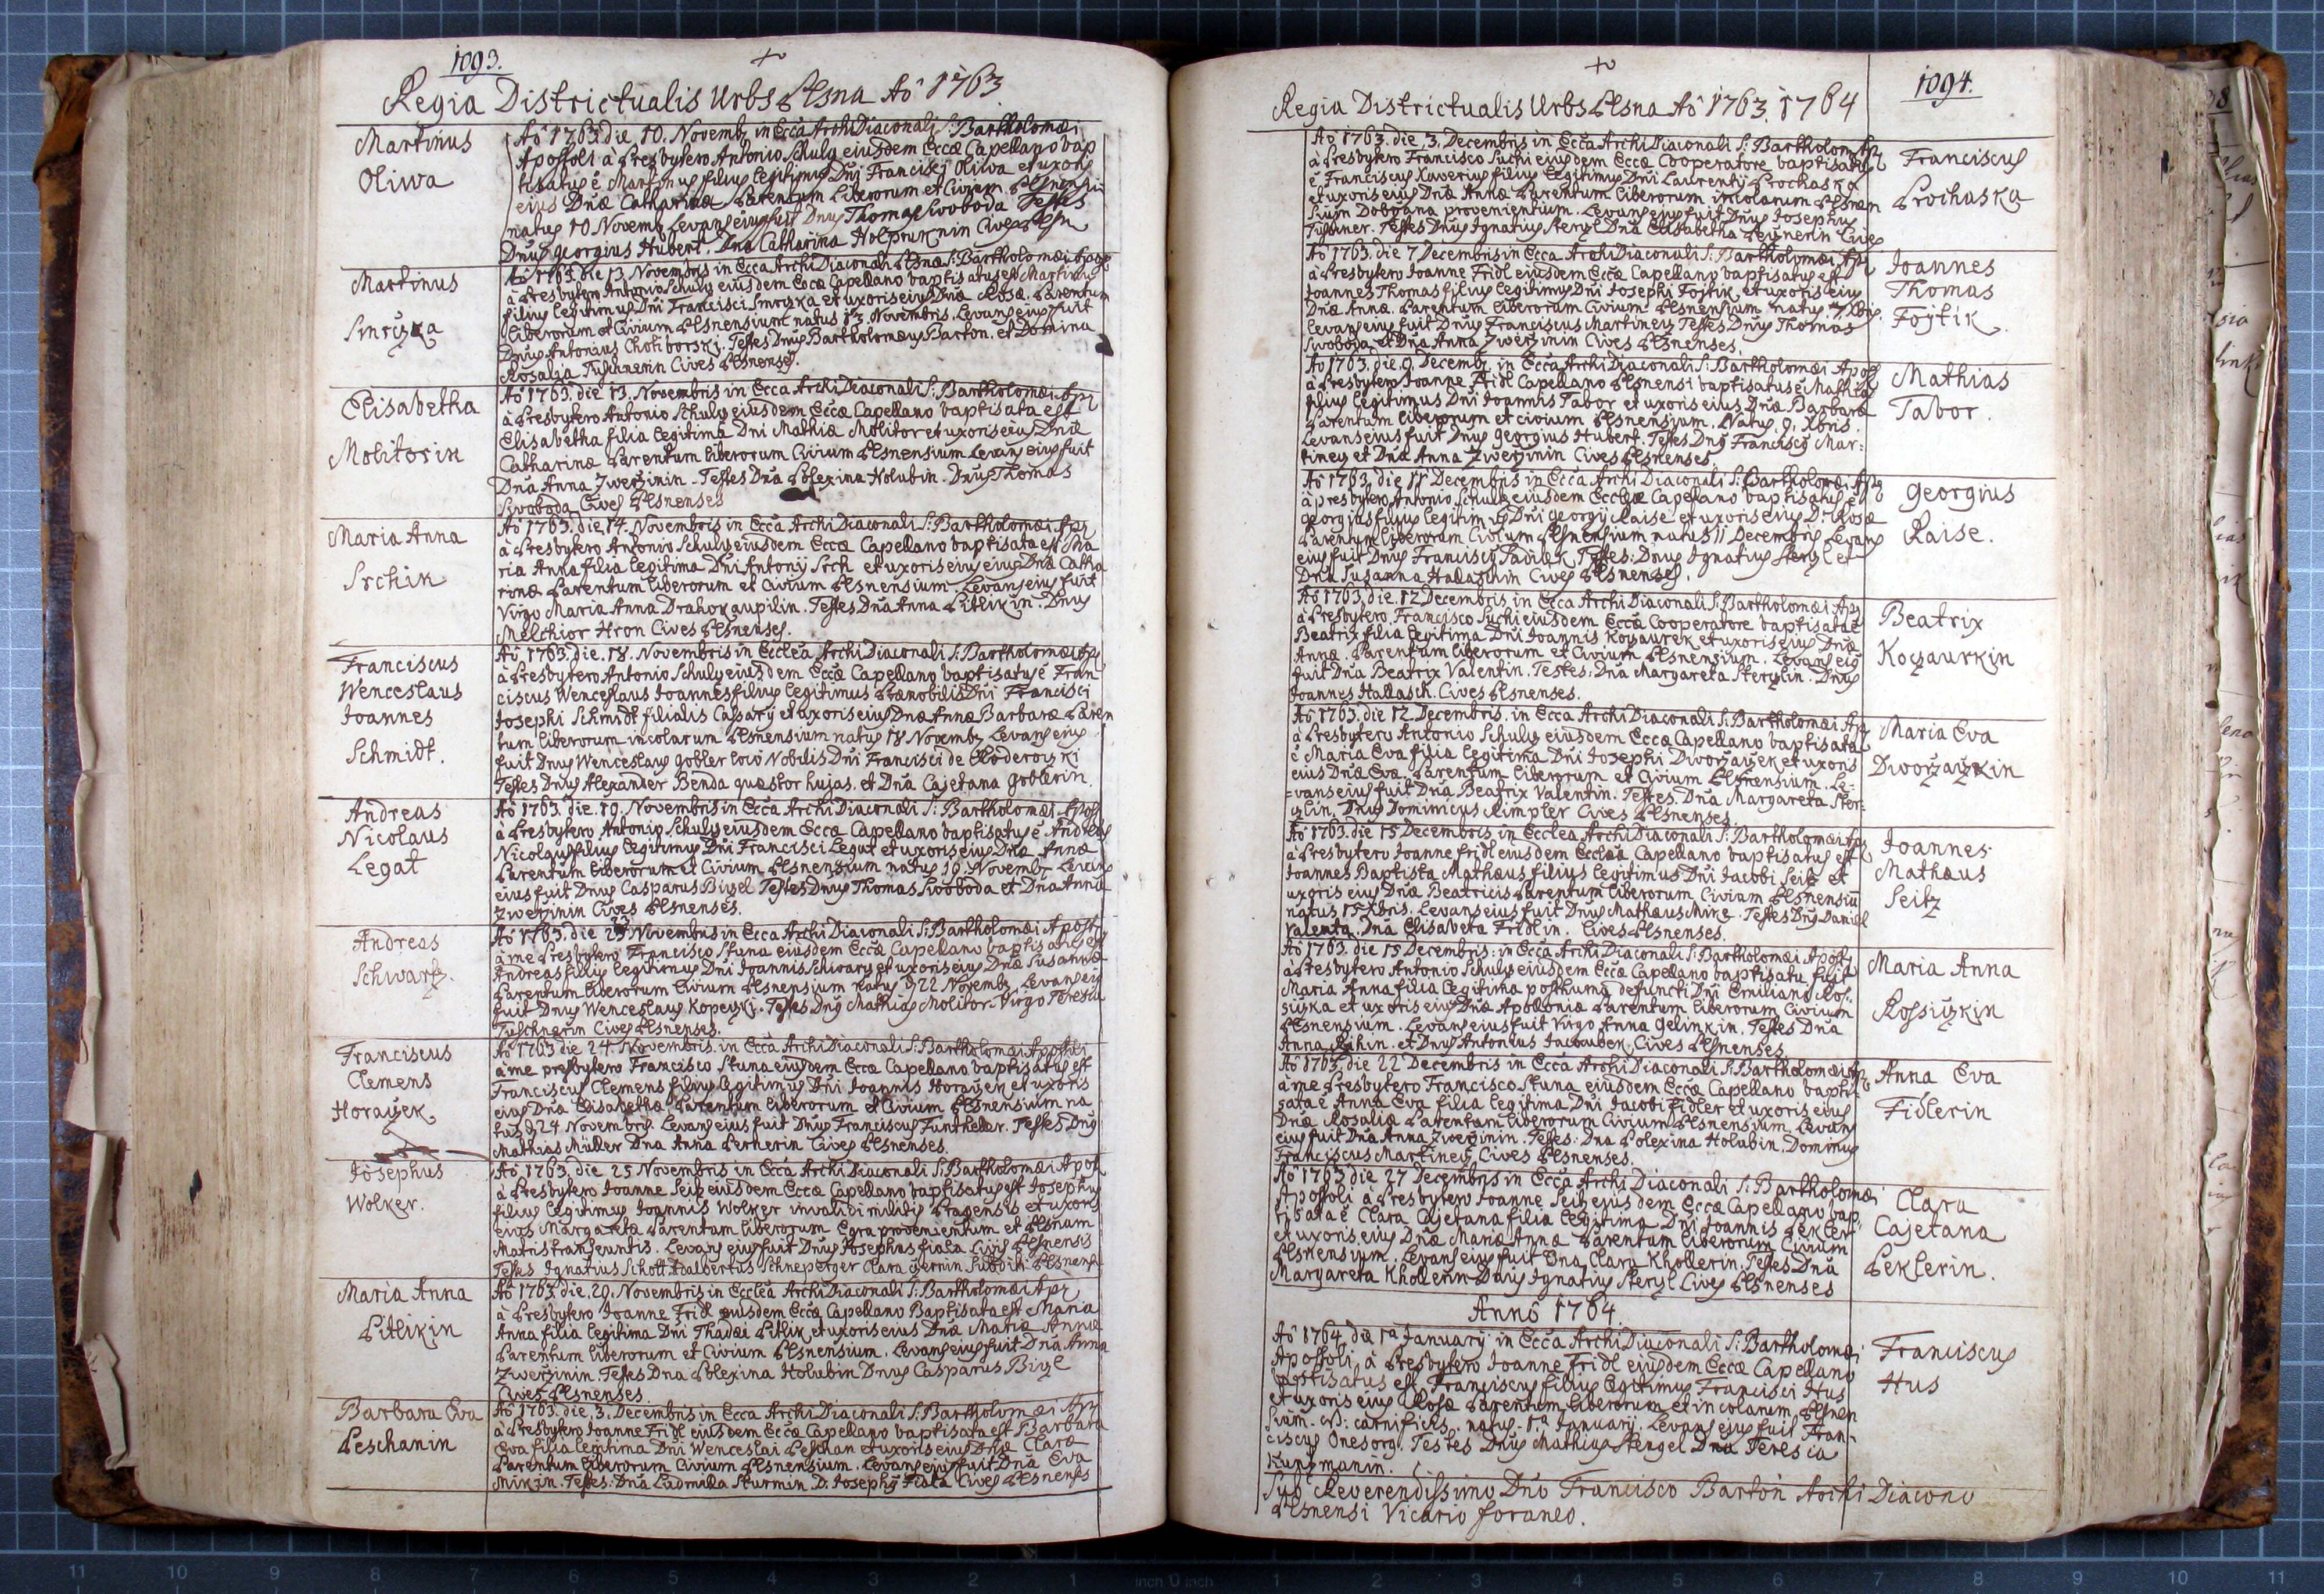 1093.
Regia Districtualis Urbs Plsna Aô 1763
Martinus
Oliwa
Aô 1763. die 10. Novemb, in Ecca ArchiDiaconali S: Bartholomæi
Apostoli â Presbytero Antonio Schulz eiusdem Eccæ Capellano bap
tisatus ê Martinus filius legitimus Dni Francisci Oliwa et uxoris
eius Dnæ Catharinæ Parentum Liberorum et Civium Plsnensium
natus 10 Novemb. Levans eius fuit Dnus Thomas Swoboda Testes
Dnus Georgius Hubert. Dna Catharina Cives Plsn
Martinus
Smrczka
Aô 1763. die 13. Novembris in Ecca ArchiDiaconali Plsnæ S: Bartholomæi Apos
â Presbytero Antonio Schulz eiusdem Eccæ Capellano baptisatus est Martinus
filius legitimus Dni Francisci Smrczka et uxoris eius Dnæ Rosæ. Parentum
Liberorum et Civium Plsnensium natus 13. Novembris. Levans eius fuit
Dnus Antonius Chotiborski. Testes Dnus Bartholomæus Barton. et Domina
Rosalia Tuschnerin Cives Plsnenses.
Elisabetha
Molitorin
Aô 1763. die 13. Novembris in Ecca ArchiDiaconali S: Bartholomæi Apo
â Presbytero Antonio Schulz eiusdem Eccæ Capellano baptisata est
Elisabetha filia legitima Dni Mathiæ Molitor et uxoris eius Dnæ
Catharinæ Parentum liberorum Civium Plsnensium Levans eius fuit
Dna Anna Zwerzinin. Testes Dna Polexina Holubin. Dnus Thomas
Swoboda Cives Plsnenses
Maria Anna
Srchin
Aô 1763. die 14. Novembris in Ecca ArchiDiaconali S: Bartholomæi Apo
â Presbytero Antonio Schulz eiusdem Eccæ Capellano baptisata est Ma
ria Anna filia legitima Dni Antonij Srch et uxoris eius eius Dnæ Catha
rinæ Parentum liberorum et Civium Plsnensium. Levans eius fuit
Virgo Maria Anna Drahokaupilin. Testes Dna Anna Pitlikin. Dnus
Melchior Hron Cives Plsnenses.
Franciscus
Wenceslaus
Joannes
Schmidt.
Aô 1763. die. 18. Novembris in Ecclea ArchiDiaconali S: Bartholomæi Apo
â Presbytero Antonio Schulz eiusdem Eccæ Capellano baptisatus ê Fran
ciscus Wenceslaus Joannes filius legitimus Prænobilis Dni Francisci
Josephi Schmidt filialis Cassarij et uxoris eius Dnæ Annæ Barbaræ Paren
tum liberorum incolarum Plsnensium natus 18 Novemb, Levans eius
fuit Dnus Wenceslaus Gobler loco Nobilis Dni Francisci de
Testes Dnus Alexander Benda quæstor hujas. et Dna Cajetana Goblerin.
Andreas
Nicolaus
Legat
Aô 1763. die. 19. Novembris in Ecca ArchiDiaconali S: Bartholomæi Apos
â Presbytero Antonio Schulz eiusdem Eccæ Capellano baptisatus ê Andreas
Nicolaus filius legitimus Dni Francisci Legat et uxoris eius Dnæ Annæ
Parentum liberorum et Civium Plsnensium natus 19. Novemb. Levans
eius fuit Dnus Casparus Bizel Testes Dnus Thomas Swoboda et Dna Anna
Zwerzinin Cives Plsnenses.
Andreas
Schwartz.
Aô 1763. die 23 Novembris in Ecca ArchiDiaconali S: Bartholomæi Apost
â me Presbytero Francisco Stuna eiusdem Eccæ Capellano baptisatus est
Andreas filius legitimus Dni Joannis Schwarz et uxoris eius Dnæ Susannæ
Parentum liberorum Civium Plsnensium natus 22 Novemb, Levans eius
fuit Dnus Wenceslaus Kopeczki. Testes Dnus Mathias Molitor. Virgo Teresia
Tuschnerin Cives Plsnenses.
Franciscus
Clemens
Horaczek
Aô 1763 die 24. Novembris. in Ecca ArchiDiaconali S: Bartholomæi Apostoli
â me presbytero Francisco Stuna eiusdem Eccæ Capellano baptisatus est
Franciscus Clemens filius legitimus Dni Joannis Horaczek et uxoris
eius Dnæ Elisabethæ Parentum liberorum et Civium Plsnensium na
tus 24 Novembris. Levans eius fuit Dnus Franciscus Funtheller. Testes Dnus
Mathias Müller Dna Anna Pernerin Cives Plsnenses.
Josephus
Wolker.
Aô 1763. die 25 Novembris in Ecca ArchiDiaconali S: Bartholomæi Apost
â Presbytero Joanne Seitz eiusdem Eccæ Capellano baptisatus est Josephus
filius legitimus Joannis Wolker invalidi militis Pragensis et uxoris
eius Margaretæ Parentum liberorum Egra provenientum et Plsnam
Matris transeuntis. Levans eius fuit Dnus Josephus Fiala Civis Plsnensis
Testes Ignatius Schott Adalbertus Schneperger Clara
Maria Anna
Pitlikin
Aô 1763. die. 29. Novembris in Ecclea ArchiDiaconali S: Bartholomæi Apo
â Presbytero Joanne Fridl eiusdem Eccæ Capellano Baptisata est Maria
Anna filia legitima Dni Thadæi Pitlik et uxoris eius Dnæ Mariæ Annæ
Parentum liberorum et Civium Plsnensium. Levans eius fuit Dna Anna
Zwerzinin. Testes Dna Polexina Holubin Dnus Casparus Bizl
Cives Plsnenses.
Barbara Eva
Peschanin
Aô 1763. die. 3. Decembris in Ecca ArchiDiaconali S: Bartholomæi Apo
â Presbytero Joanne Fridl eiusdem Eccæ Capellano baptisata est Barbara
Eva filia legitima Dni Wenceslai Peschan et uxoris eius Dnæ Claræ
Parentum liberorum Civium Plsnensium. Levans eius fuit Dna Eva
Testes: Dna Ludmilla Sturmin. D. Josephus Fiala Cives Plsnenses
Regia Districtualis Urbs Plsna Aô 1763. 1764
1094.
Aô 1763. die, 3. Decembris in Ecca ArchiDiaconali S: Bartholom Ap
â Presbytero Francisco Suchi eiusdem Eccæ Cooperatore baptisatus
ê Franciscus Xaverius filius legitimus Dni Laurentij Prochaska
et uxoris eius Dnæ Annæ Parentum liberorum incolarum Plsnen
sium Dobrzana provenientium. Levans eius fuit Dnus Josephus
Tuschner. Testes Dnus Ignatius Sterzl Dna Elisabetha Cives
Franciscus
Prochaska
Aô 1763. die 7 Decembris in Ecca ArchiDiaconali S: Bartholomæi Apo
â Presbytero Joanne Fridl eiusdem Eccæ Capellano baptisatus est
Joannes Thomas filius legitimus Dni Josephi Fojtik, et uxoris eius
Dnæ Annæ. Parentum liberorum Civium Plsnensium natus 7 Xbris.
levans eius fuit Dnus Franciscus Martinez Testes Dnus Thomas
Swoboda et Dna Anna Zwerzinin Cives Plsnenses.
Joannes
Thomas
Fojtik.
Aô 1763. die. 9. Decemb, in Ecca ArchiDiaconali S: Bartholomæi Apost
â Presbytero Joanne Fridl Capellano Plsnensi baptisatus ê Mathias
filius legitimus Dni Joannis Tabor et uxoris eius Dnæ Barbaræ
Parentum liberorum et civium Plsnensium. Natus. 9. Xbris.
Levans eius fuit Dnus Georgius Hubert. Testes Dnus Franciscus Mar:
tinez et Dna Anna Zwerzinin Cives Plsnenses
Mathias
Tabor.
Aô 1763. die 11 Decembris in Ecca ArchiDiaconali S: Bartholomæi Apo
â presbytero Antonio Schulz eiusdem Eccleæ Capellano baptisatus est
Georgius filius legitimus Dni Georgij Raise et uxoris eius D. Rosæ
Parentum liberorum Civium Plsnensium natus 11 Decembris Levans
eius fuit Dnus Franciscus Testes: Dnus Ignatius Sterzl et
Dna Susanna Hallaschin Cives Plsnenses.
Georgius
Raise.
Aô 1763. die. 12 Decembris. in Ecca ArchiDiaconali S: Bartholomæi Apo
â Presbytero. Francisco Suchi eiusdem Eccæ Cooperatore baptisata ê
Beatrix filia legitima Dni Joannis Koczaurek, et uxoris eius Dnæ
Annæ. Parentum liberorum et Civium Plsnensium. Levans eius
fuit Dna Beatrix Valentin. Testes: Dna Margareta Sterzlin. Dnus
Joannes Hallasch. Cives Plsnenses.
Beatrix
Koczaurkin
Aô 1763. die 12. Decembris. in Ecca ArchiDiaconali S: Bartholomæi Ap
â Presbytero Antonio Schulz eiusdem Eccæ Capellano baptisata
ê Maria Eva filia legitima Dni Josephi Dworzaczek et uxoris
eius Dnæ Evæ. Parentum liberorum et Civium Plsnensium. Le:
=vans eius fuit Dna Beatrix Valentin. Testes. Dna Margareta Ster:
zlin. Dnus Dominicus Rimpler Cives Plsnenses.
Maria Eva
Dworzaczkin
Aô 1763. die 15 Decembris in Ecclea ArchiDiaconali S: Bartholomæi Ap
â Presbytero Joanne Fridl eiusdem Eccleæ Capellano baptisatus est
Joannes Baptista Mathæus filius legitimus Dni Jacobi Seitz et
uxoris eius Dnæ Beatricis Parentum liberorum Civium Plsnensiu
natus 15 Xbris. Levans eius fuit Dnus Mathæus Mirz. Testes Dnus Daniel
Valenta. Dna Elisabeta Fridlin. Cives Plsnenses.
Joannes
Mathæus
Seitz
Aô 1763. die 15 Decembris: in Ecca ArchiDiaconali S: Bartholomæi Apost,
â Presbytero Antonio Schulz eiusdem Eccæ Capellano baptisata fuit
Maria Anna filia legitima posthuma defuncti Dni Emiliani Ros:
siczka et uxoris eius Dnæ Apolloniæ Parentum liberorum Civium
Plsnensium. Levans eius fuit Virgo Anna Gelinkin. Testes Dna
Anna Rihin. et Dnus Antonius Cives Plsnenses
Maria Anna
Rossiczkin
Aô 1763. die 22 Decembris in Ecca ArchiDiaconali S. Bartholomæi Ap
â me Presbytero Francisco Stuna eiusdem Eccæ Capellano bapti-
sata ê Anna Eva filia legitima Dni Jacobi Fidler et uxoris eius
Dnæ Rosaliæ Parentum liberorum Civium Plsnensium. Levans
eius fuit Dna Anna Zwerzinin. Testes: Dna Polexina Holubin. Dominus
Franciscus Martinez Cives Plsnenses.
Anna Eva
Fidlerin
Aô 1763 die 27 Decembris in Ecca ArchiDiaconali S: Bartholomæi
Apostoli â Presbytero Joanne Seitz eiusdem Eccæ Capellano bap
tisata ê Clara Cajetana filia legitima Dni Joannis Pekler
et uxoris eius Dnæ Mariæ Annæ Parentum liberorum Civium
Plsnensium. Levans eius fuit Dna Clara Khollerin. Testes Dna
Margareta Khollerin Dnus Ignatius Sterzl Cives Plsnenses
Clara
Cajetana
Peklerin.
Annô 1764.
Aô 1764. die 1ma January in Ecca ArchiDiaconali S: Bartholomæi
Apostoli â Presbytero Joanne Fridl eiusdem Eccæ Capellano
baptisatus est Franciscus filius legitimus Francisci Hus
et uxoris eius Rosæ Parentum liberorum et incolarum Plsnen
sium. carnificis. natus. 1ma January. Levans eius fuit Fran-
ciscus Onesorg. Testes Dnus Mathias Stengel Dna Teresia
Kunzmanin.
Franciscus
Hus
Sub Reverendissimo Dno Francisco Barton Archi Diacono
Plsnensi Vicario foraneo.